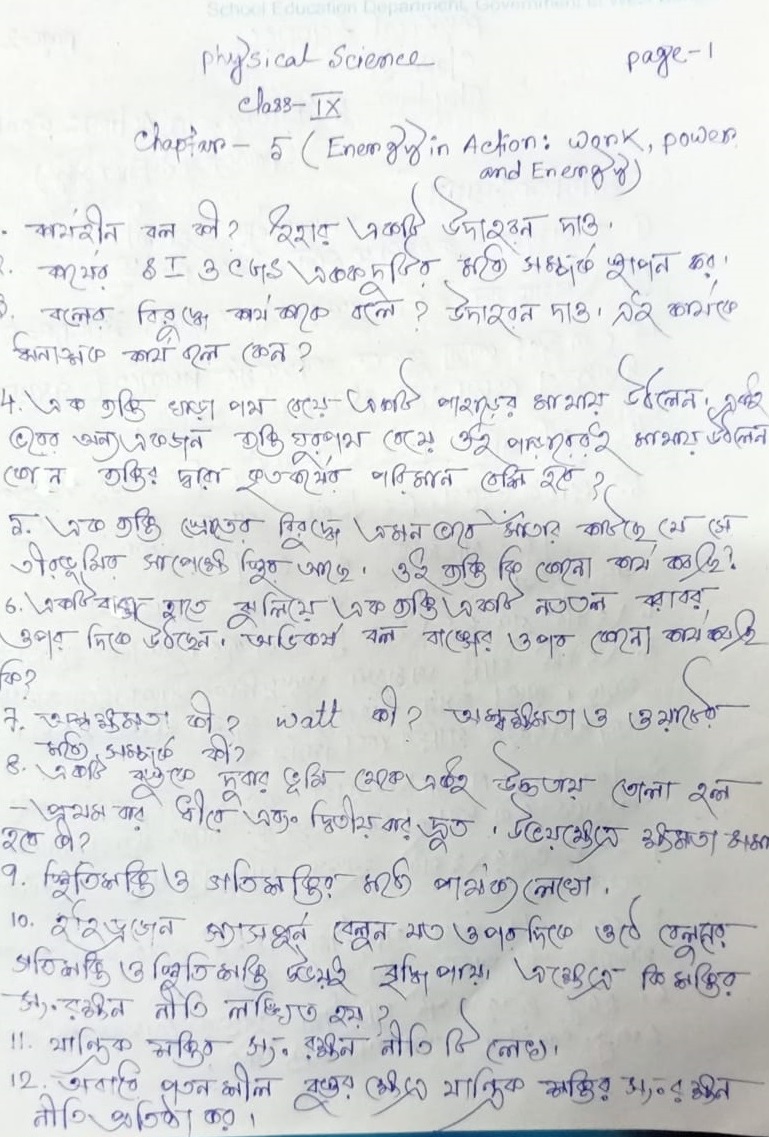 School Education Department, Government of West
Physical Science page-1
Class-IX
Chapter - 5 (Energy in Action: Work, power
and Energy)
. কার্যহীন বল কী? ইহার একটি উদাহরন দাও।
2. কার্যের SI ও CGS একক দুটির মধ্যে সম্পর্ক স্থাপন কর।
3. বলের বিরুদ্ধে কার্য কাকে বলে? উদাহরন দাও। এই কার্যকে
ঋনাত্মক কার্য বলে কেন?
4. এক ব্যক্তি খাড়া পথ বেয়ে একটি পাহাড়ের মাথায় উঠলেন। একই
ভরের অন্য একজন ব্যক্তি ঘুরপথ বেয়ে ওই পাহাড়েরই মাথায় উঠলেন
কোন ব্যক্তির দ্বারা কৃতকার্যের পরিমান বেশি হবে?
5. এক ব্যক্তি স্রোতের বিরুদ্ধে এমন ভাবে সাঁতার কাটছে যে সে
তীরভূমির সাপেক্ষে স্থির আছে। ওই ব্যক্তি কি কোনো কার্য করছে?
6. একটি বাক্স হাতে ঝুলিয়ে এক ব্যক্তি একটি নততল বরাবর
ওপর দিকে উঠছেন। অভিকর্ষ বল বাক্সের ওপর কোনো কার্য করছে
কি?
7. অশ্বক্ষমতা কী? watt কী? অশ্বক্ষমতা ও ওয়াটের
মধ্যে সম্পর্ক কী?
8. একটি বস্তুকে দুবার ভূমি থেকে একই উচ্চতায় তোলা হল
- প্রথম বার ধীরে এবং দ্বিতীয় বার দ্রুত। উভয়ক্ষেত্রে ক্ষমতা সমান
হবে কী?
9. স্থিতিশক্তি ও গতিশক্তির মধ্যে পার্থক্য লেখো।
10. হাইড্রোজেন গ্যাসপূর্ন বেলুন যত ওপর দিকে ওঠে বেলুনের
গতিশক্তি ও স্থিতিশক্তি উভয়ই বৃদ্ধি পায়। এক্ষেত্রে কি শক্তির
সংরক্ষন নীতি লঙ্ঘিত হয়?
11. যান্ত্রিক শক্তির সংরক্ষন নীতি টি লেখ।
12. অবাধে পতনশীল বস্তুর ক্ষেত্রে যান্ত্রিক শক্তির সংরক্ষন
নীতি প্রতিষ্ঠা কর।